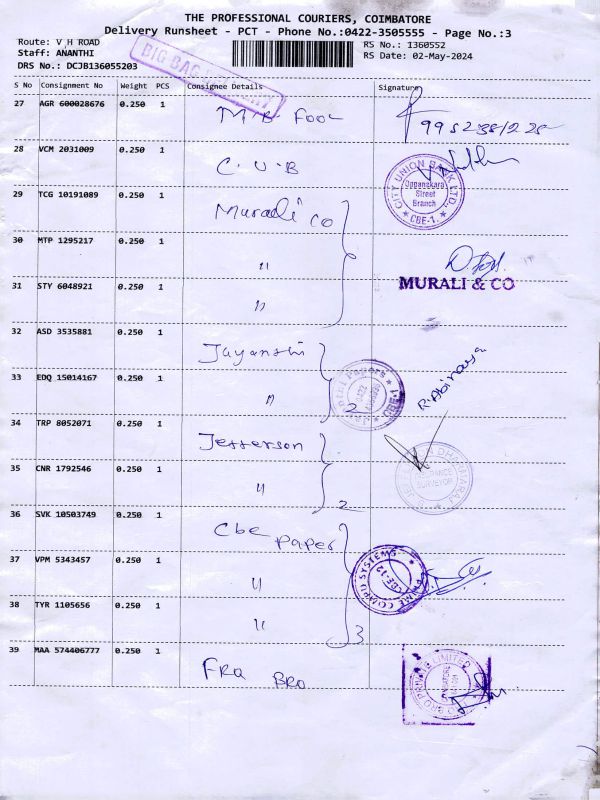 THE PROFESSIONAL COURIERS, COIMBATORE
Delivery Runsheet - PCT - Phone No.:0422-3505555 - Page No.:3
Route: V H ROAD
Staff: ANANTHI
DRS No.: DCJB136055203
RS No.: 1360552
RS Date: 02-May-2024
BIG BAG
S No Consignment No Weight PCS Consignee Details Signature
27 AGR 600028676 0.250 1 M.B. Fool
28 VCM 2031009 0.250 1 C.U.B
CITY UNION BANK LTD.
Oppanakara
Street
Branch
CBE-1.
29 TCG 10191089 0.250 1 Murali co
30 MTP 1295217 0.250 1 "
31 STY 6048921 0.250 1 "
MURALI & CO
32 ASD 3535881 0.250 1 Jayanthi
33 EDQ 15014167 0.250 1 " 2
Papers
CBE-1
R. Abinaya
34 TRP 8052071 0.250 1 Jefferson
35 CNR 1792546 0.250 1 " 2
SURVEYOR
36 SVK 10503749 0.250 1 Cbe paper
37 VPM 5343457 0.250 1 "
38 TYR 1105656 0.250 1 " 3
PRIME COMPU SYSTEMS
CBE-12
39 MAA 574406777 0.250 1 Fra Bro
BRO PRIVATE LIMITED